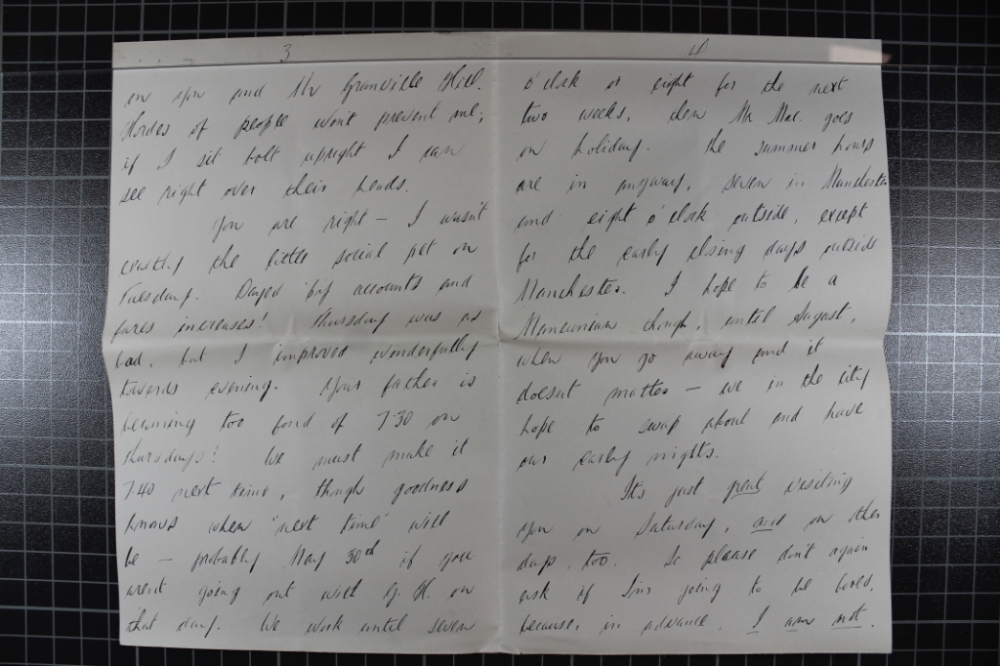 3
on you and Mr Granville Hill.
Hordes of people won't prevent me,
if I sit bolt upright I can
see right over their heads.
You are right — I wasn't
exactly the little social pet on
Tuesday. Dazed by accounts and
fares increases! Thursday was as
bad, but I improved wonderfully
towards evening. Your father is
becoming too fond of 7.30 on
Thursdays! We must make it
7.40 next time, though goodness
knows when "next time" will
be — probably May 30th if you
arent going out with G. H. on
that day. We work until seven
4
o'clock or eight for the next
two weeks, then Mr Mac. goes
on holiday. The summer hours
are in anyway, seven in Manchester
and eight o'clock outside, except
for the early closing days outside
Manchester. I hope to be a
Mancunian though, until August,
when you go away and it
doesnt matter — we in the city
hope to swap about and have
our early nights.
Its just great visiting
you on Saturday, and on other
days, too. So please don't again
ask if I'm going to be bored,
because, in advance, I am not.